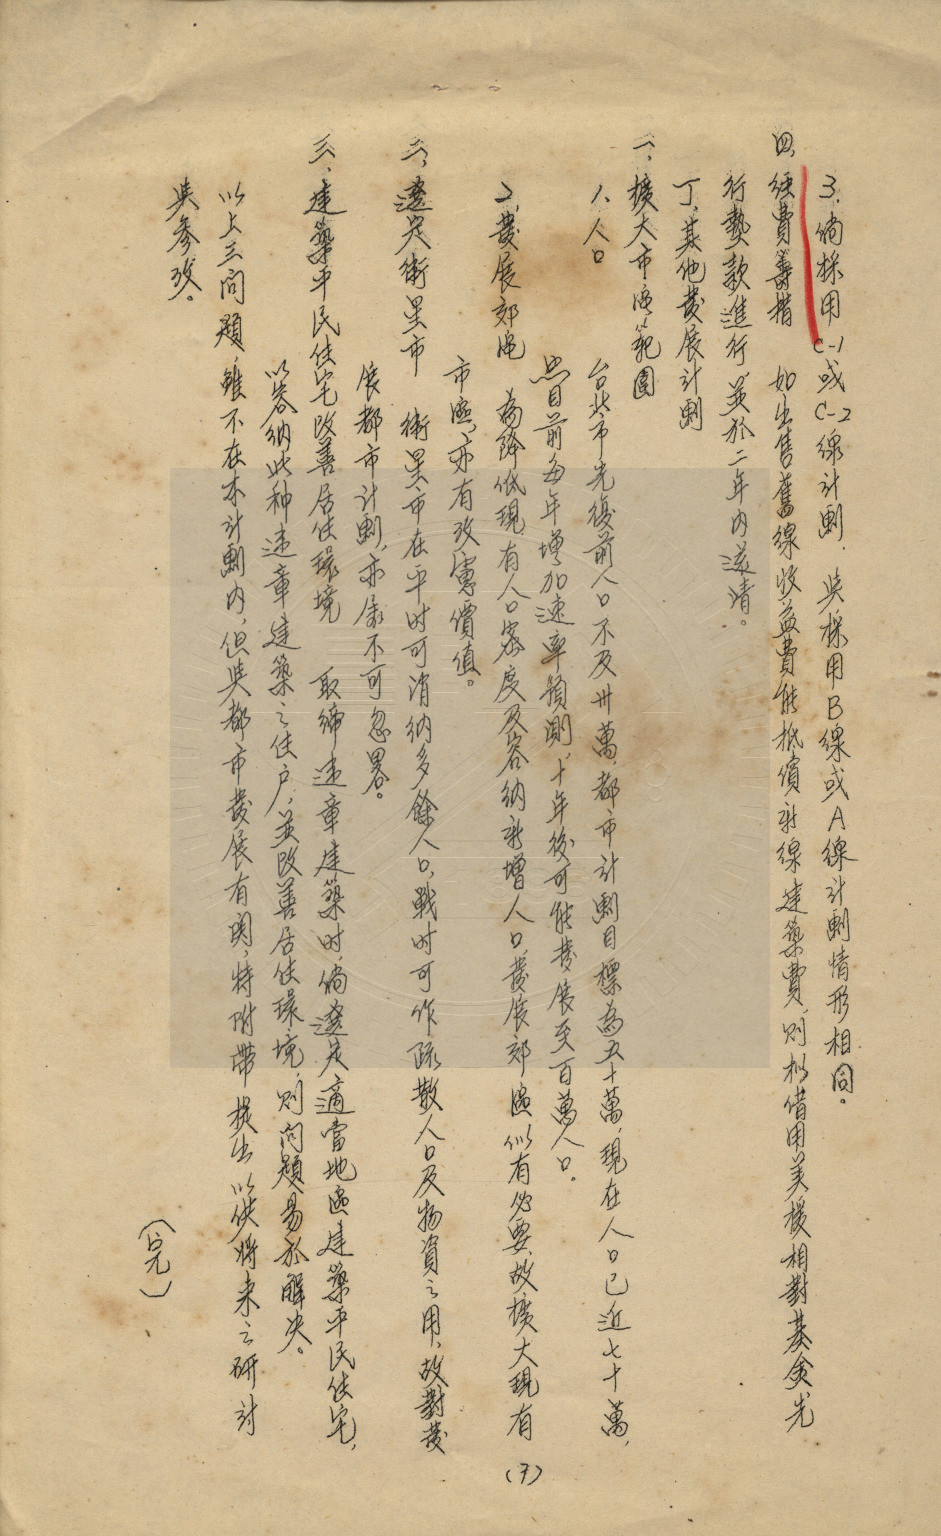 3. 倘採用C-1或C-2線計劃，與採用B線或A線計劃情形相同。
四、經費籌措 如出售舊線收益費能抵償新線建築費，則擬借用美援相對基金先
行墊款進行，並於二年內還清。
丁、其他發展計劃
一、擴大市區範圍
1、人口 台北市光復前人口不及卅萬，都市計劃目標為五十萬，現在人口已近七十萬，
照目前每年增加速率預測，十年後可能發展至百萬人口。
2、發展郊區 為降低現有人口密度及容納新增人口，發展郊區似有必要，故擴大現有
市區，亦有考慮價值。
二、選定衛星市 衛星市在平時可消納多餘人口，戰時可作疏散人口及物資之用，故對發
展都市計劃，亦屬不可忽畧。
三、建築平民住宅改善居住環境 取締違章建築時，倘選定適當地區建築平民住宅，
以容納此种違章建築之住户，並改善居住環境，則問題易於解決。
以上三問題，雖不在本計劃內，但與都市發展有関，特附帶提出以供將來之研討
與參攷。
（完）
(7)